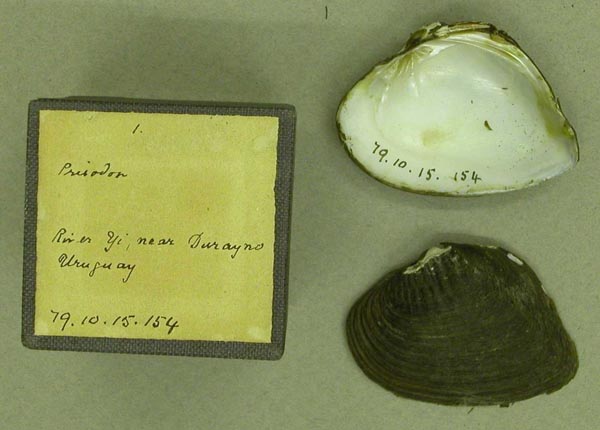 1.
Prisodon
River Yi, near Durayno
Uruguay
79.10.15.154
79.10.15.154